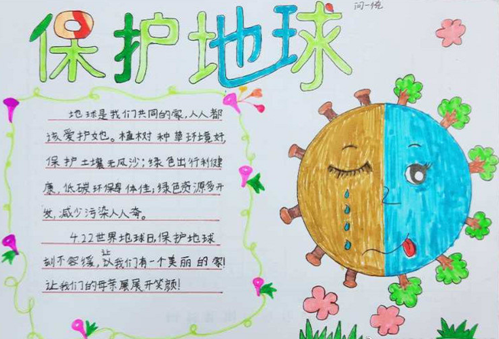 保护地球
地球是我们共同的家,人人都
该爱护她。植树种草环境好,
保护土壤无风沙;绿色出行利健
康,低碳环保身体佳;绿色资源多开
发,减少污染人人夸。
4.22世界地球日,保护地球
刻不容缓,让我们有一个美丽的家!
让我们的母亲展开笑颜!